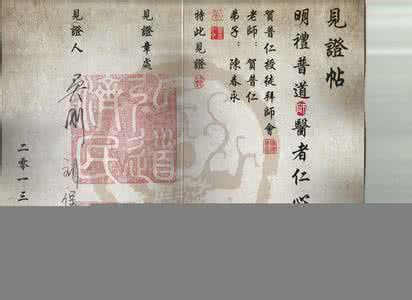 見證帖
明禮普道醫者仁心
賀普仁授徒拜師會
老師：賀普仁
弟子：陳春永
特此見證
見證章處
弘道濟民
見證人
二零一三